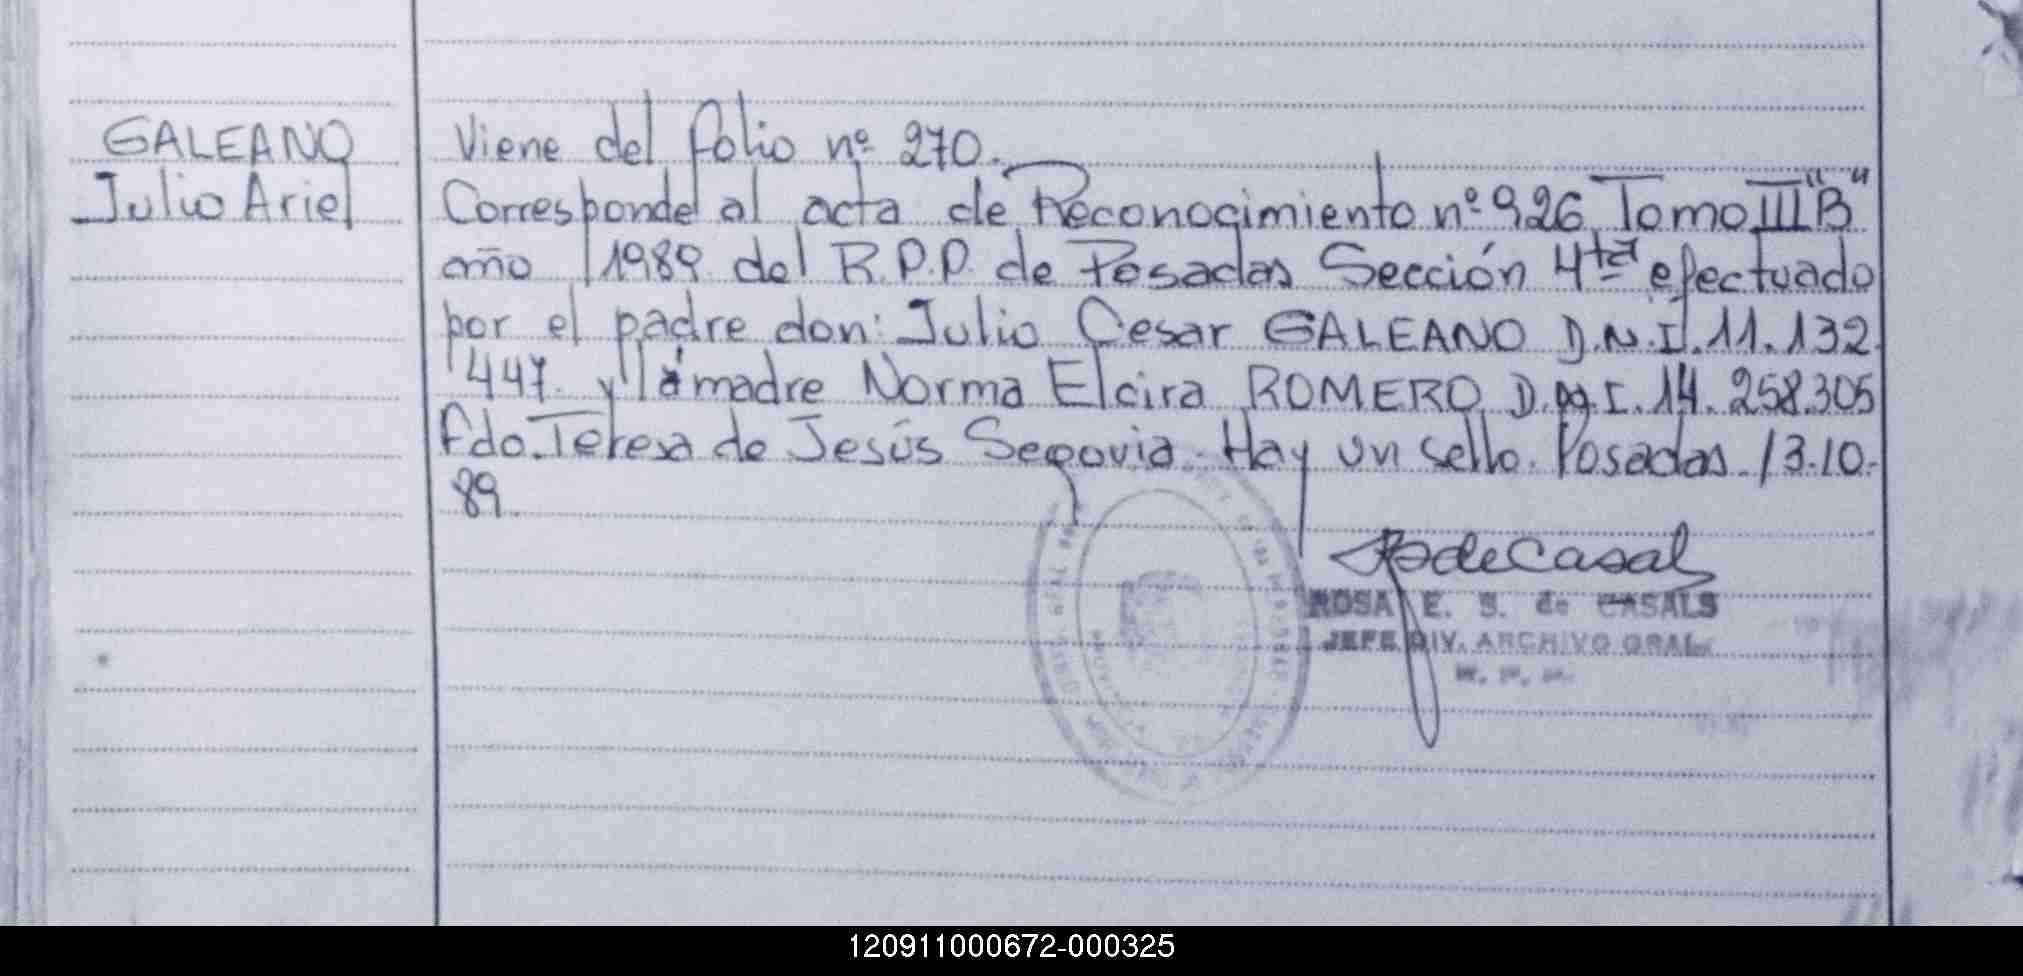 GALEANO
Julio Ariel
Viene del folio nº 270.
Corresponde al acta de Reconocimiento nº 926 Tomo III "B"
año 1989 del R.P.P. de Posadas Sección 4ta efectuado
por el padre don: Julio Cesar GALEANO D.N.I. 11.132.
447. y la madre Norma Elcira ROMERO D.N.I. 14.258.305
Fdo. Teresa de Jesús Segovia. Hay un sello. Posadas 13.10.
89.
ROSA E. S. de CASALS
JEFE DIV. ARCHIVO GRAL.
120911000672-000325